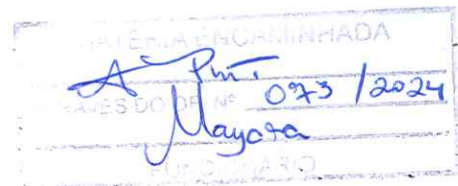 MATÉRIA ENCAMINHADA
A PMT.
ATRAVÉS DO OF. Nº 073/2024
Mayara
FUNCIONÁRIO